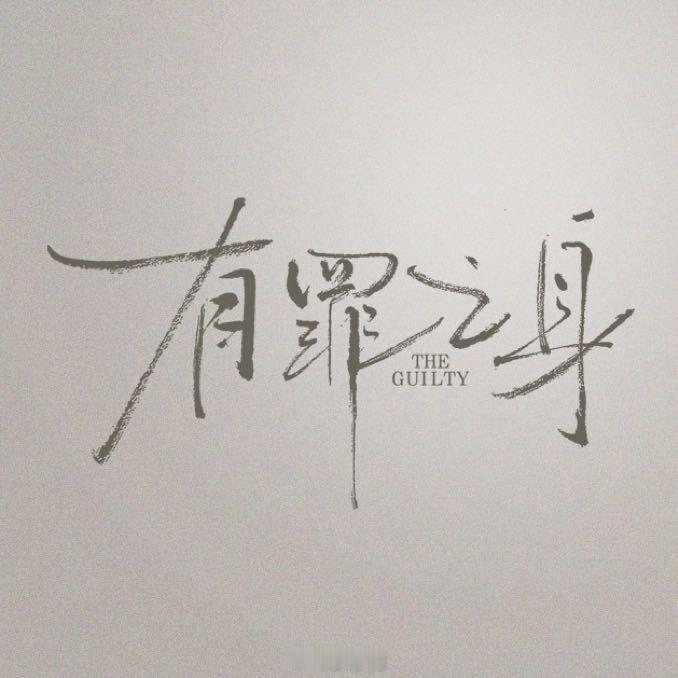 有罪之身
THE
GUILTY